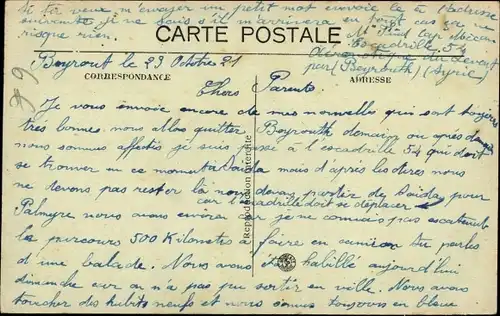 Si tu veux m'envoyer un petit mot envoie le à l'adresse
suivante je ne sais s'il m'arrivera en tout cas ça ne
risque rien.
CARTE POSTALE
Mr Pud Cap mécan
Escadrille 54
du Levant
par (Beyrouth) (Syrie)
Beyrout le 23 Octobre 21
CORRESPONDANCE
ADRESSE
Chers Parents
Je vous envoie encore de mes nouvelles qui sont toujours
très bonnes. nous allons quitter Beyrouth demain ou après demain
nous sommes affectés je suis passé à l'escadrille 54 qui doit
se trouver en ce moment à mais d'après les dires nous
ne devons pas rester là nous devons partir de Saïda pour
car l'escadrille doit se déplacer
Palmyre nous avons environ car je ne connais pas exactement
le parcours 500 Kilomètres à faire en camion tu parles
d'une balade. Nous avons habillé aujourd'hui
dimanche car on n'a pas pu sortir en ville. Nous avons
toucher des habits neufs et nous sommes toujours en bleu
(Reproduction interdite)